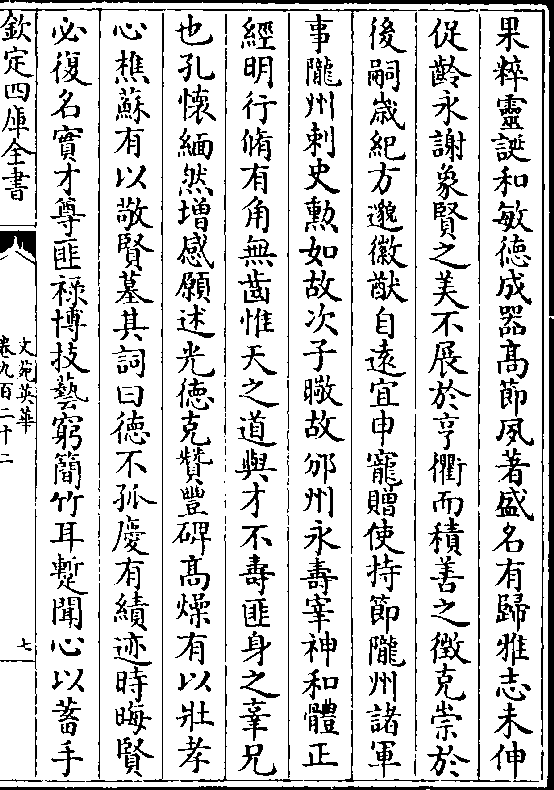 果粹靈誕和敏德成器髙節夙著盛名有歸雅志未伸
促齡永謝象賢之美不展於亨衢而積善之徴克崇於
後嗣歳紀方邈徽猷自遠宜申寵贈使持節隴州諸軍
事隴州刺史勲如故次子暾故邠州永壽宰神和體正
經明行脩有角無齒惟天之道與才不壽匪身之辜兄
也孔懐緬然増感願述光徳克贊豐碑髙燥有以壯孝
心樵蘇有以敬賢墓其詞曰徳不孤慶有績迹時晦賢
必復名實才尊匪禄博技藝窮簡竹耳蹔聞心以蓄手
欽定四庫全書
文苑英華
卷九百二十二
七